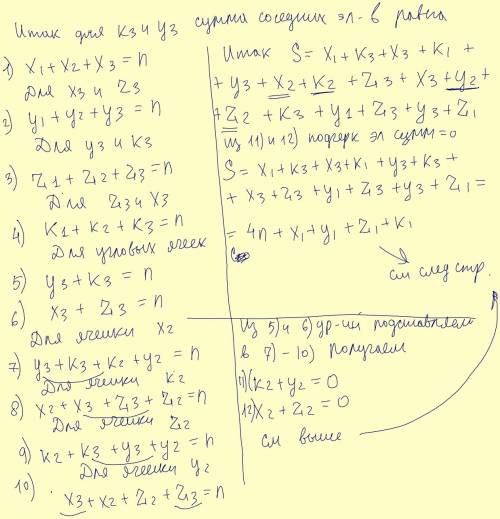 Итак для k3 и y3 сумма соседних эл-в равна
1) x1 + x2 + x3 = n
Для x3 и z3
2) y1 + y2 + y3 = n
Для y3 и k3
3) z1 + z2 + z3 = n
Для z3 и x3
4) k1 + k2 + k3 = n
Для угловых ячеек
5) y3 + k3 = n
6) x3 + z3 = n
Для ячейки x2
7) y3 + k3 + k2 + y2 = n
Для ячейки k2
8) x2 + x3 + z3 + z2 = n
Для ячейки z2
9) k2 + k3 + y3 + y2 = n
Для ячейки y2
10) x3 + x2 + z2 + z3 = n
Итак S = x1 + k3 + x3 + k1 +
+ y3 + x2 + k2 + z3 + x3 + y2 +
+ z2 + k3 + y1 + z3 + y3 + z1
Из 11) и 12) подчерк эл сумм = 0
S = x1 + k3 + x3 + k1 + y3 + k3 +
+ x3 + z3 + y1 + z3 + y3 + z1 =
= 4n + x1 + y1 + z1 + k1
см след стр.
Из 5) и 6) ур-ий подставляем
в 7) - 10) получаем
11) k2 + y2 = 0
12) x2 + z2 = 0
см выше